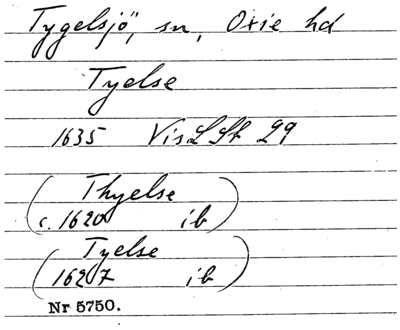 Tygelsjö, sn, Oxie hd
Tyelse
1635 VisLSt 29
(Thyelse
c. 1620 ib)
(Tyelse
1627 ib)
Nr 5750.